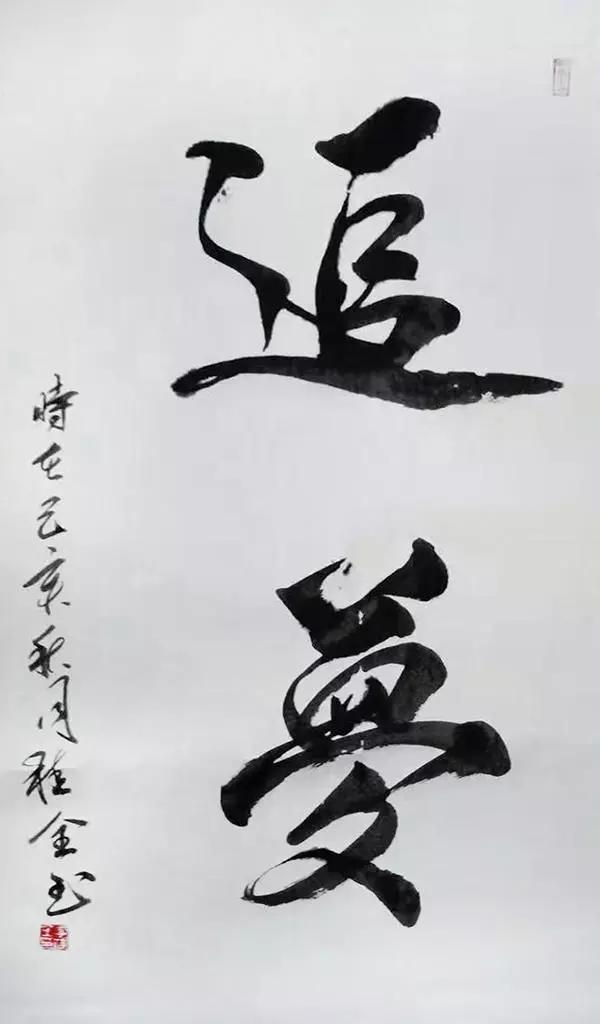 追夢
時在己亥秋月程金玉